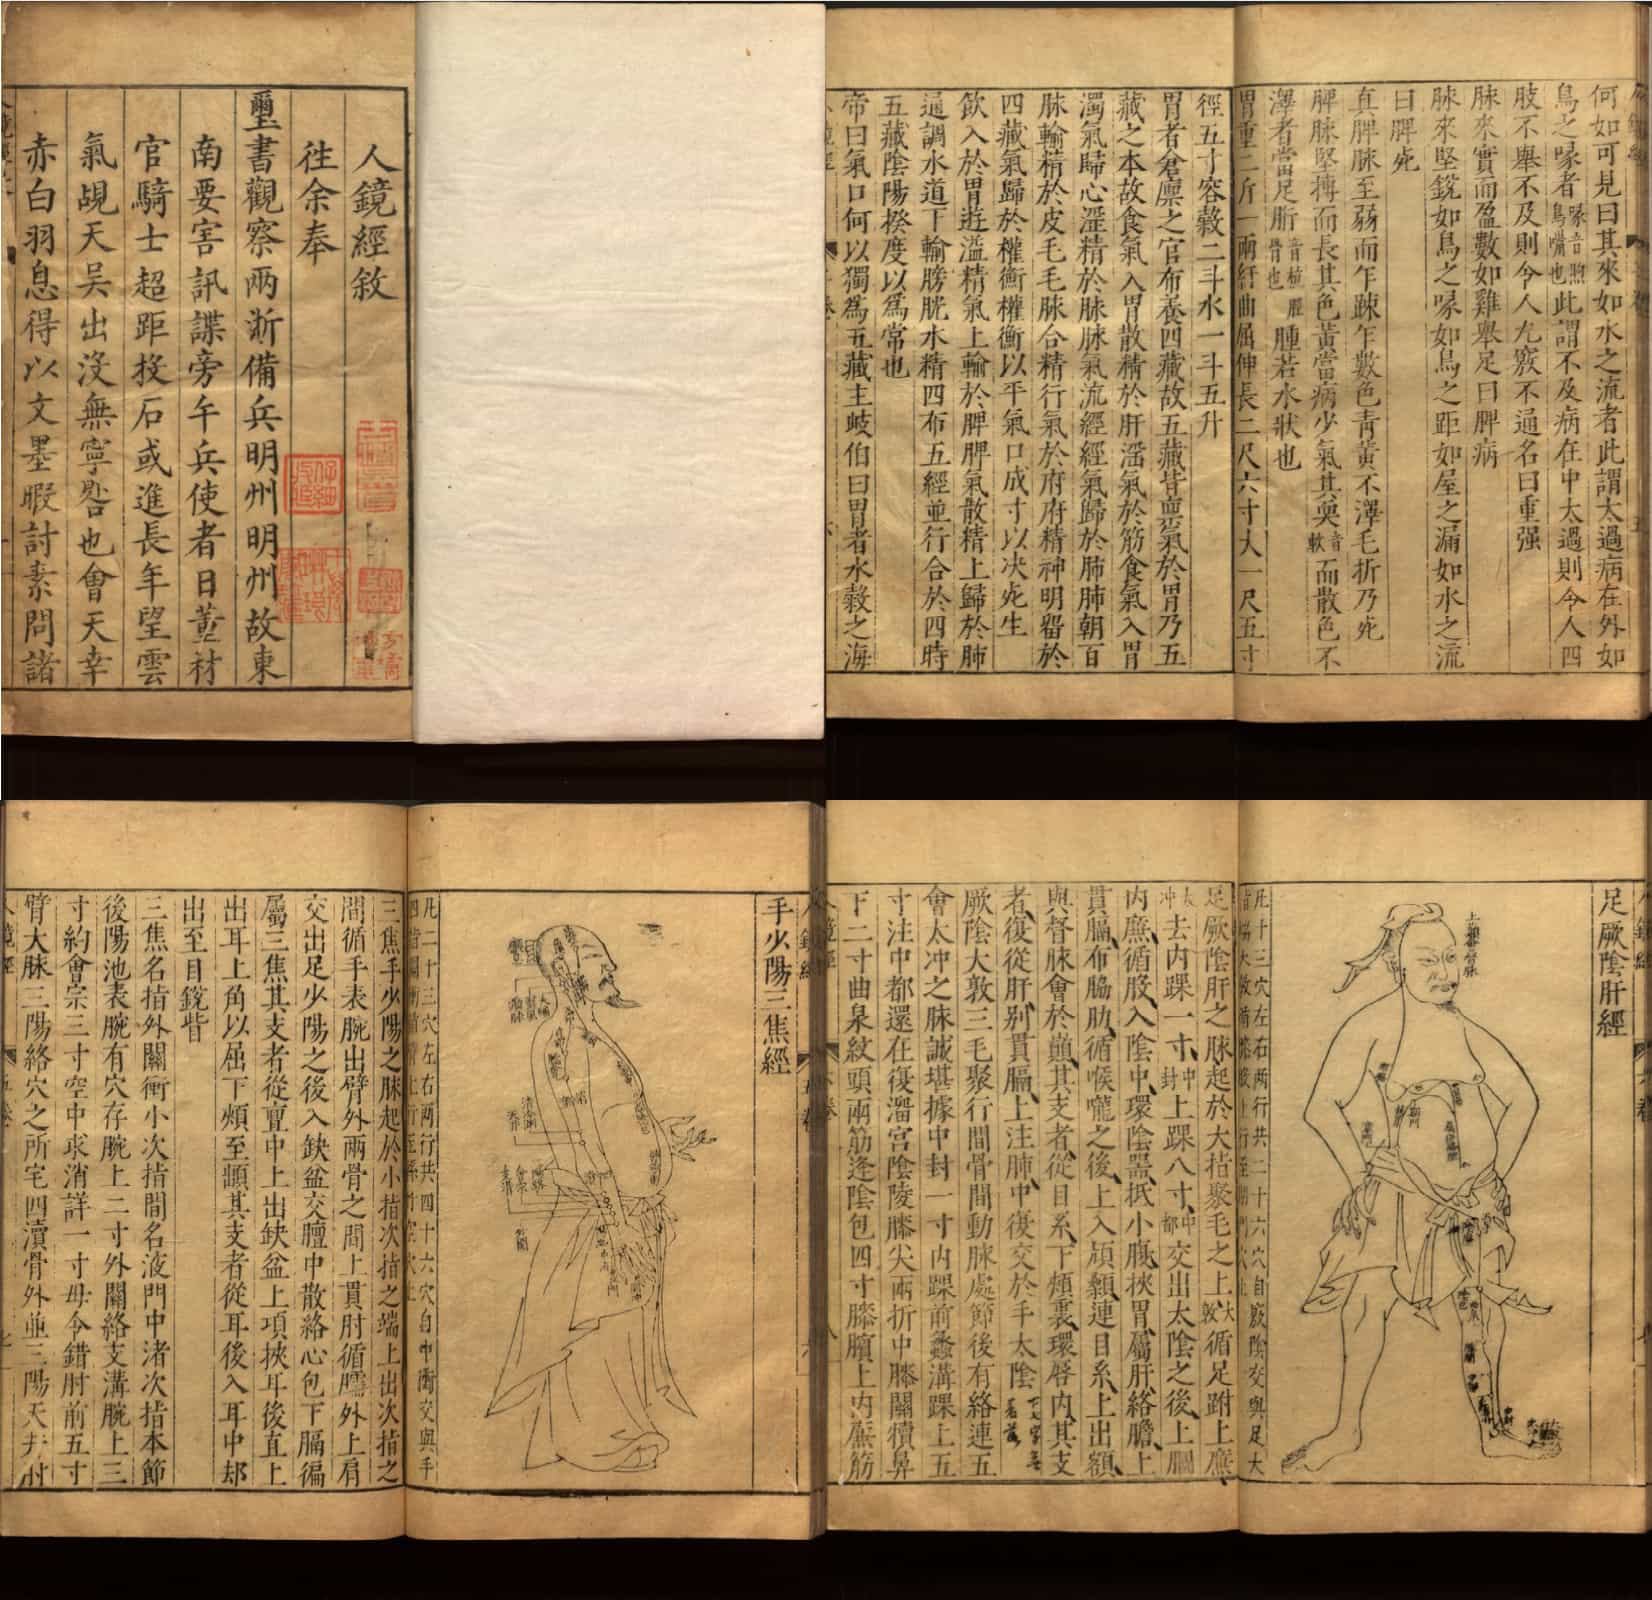 人鏡經敘
徃余奉
璽書觀察兩浙備兵明州明州故東
南要害訊諜旁午兵使者日蓳材
官騎士超距投石或進長年望雲
氣覘天吳出沒無寧晷也會天幸
赤白羽息得以文墨暇討素問諸
何如可見曰其來如水之流者此謂太過病在外如
鳥之喙者喙音煦鳥嘴也此謂不及病在中太過則令人四
肢不舉不及則令人九竅不通名曰重强
脉來實而盈數如雞舉足曰脾病
脉來堅銳如鳥之喙如鳥之距如屋之漏如水之流
曰脾死
真脾脉至弱而乍踈乍數色青黃不澤毛折乃死
脾脉堅搏而長其色黃當病少氣其耎音軟而散色不
澤者當足䯒腫若水狀也
胃重二斤一兩紆曲屈伸長二尺六寸大一尺五寸
徑五寸容穀二斗水一斗五升
胃者倉廩之官布養四藏故五藏皆稟氣於胃乃五
藏之本故食氣入胃散精於肝滛氣於筋食氣入胃
濁氣歸心滛精於脉脉氣流經經氣歸於肺肺朝百
脉輸精於皮毛毛脉合精行氣於府府精神明畱於
四藏氣歸於權衡權衡以平氣口成寸以决死生
飲入於胃遊溢精氣上輸於脾脾氣散精上歸於肺
通調水道下輸膀胱水精四布五經並行合於四時
五藏陰陽揆度以爲常也
帝曰氣口何以獨爲五藏主岐伯曰胃者水穀之海
手少陽三焦經
凡二十三穴左右兩行共四十六穴自中衝交與手
四指關衝循臂上行至絲竹空穴止
三焦手少陽之脉起於小指次指之端上出次指之
間循手表腕出臂外兩骨之間上貫肘循臑外上肩
交出足少陽之後入缺盆交膻中散絡心包下膈徧
屬三焦其支者從亶中上出缺盆上項挾耳後直上
出耳上角以屈下頰至䪼其支者從耳後入耳中却
出至目銳眥
三焦名指外關衝小次指間名液門中渚次指本節
後陽池表腕有穴存腕上二寸外關絡支溝腕上三
寸約會宗三寸空中求消詳一寸毋令錯肘前五寸
臂大脉三陽絡穴之所宅四瀆骨外並三陽天井肘
足厥陰肝經
凡十三穴左右兩行共二十六穴自厥陰交與足大
指端大敦循膝股上行至期門穴止
足厥陰肝之脉起於大指聚毛之上大敦循足跗上廉
太冲去内踝一寸中封上踝八寸中都交出太陰之後上膕
内廉循股入陰中環陰器抵小腹挾胃屬肝絡膽上
貫膈布脇肋循喉嚨之後上入頏顙連目系上出額
與督脉會於巔其支者從目系下頰裏環唇内其支
者復從肝别貫膈上注肺中復交於手太陰
厥陰大敦三毛聚行間骨間動脉處節後有絡連五
會太冲之脉誠堪據中封一寸内踝前蠡溝踝上五
寸注中都還在復溜宮陰陵膝尖兩折中膝關犢鼻
下二寸曲泉紋頭兩筋逢陰包四寸膝臏上内廉筋